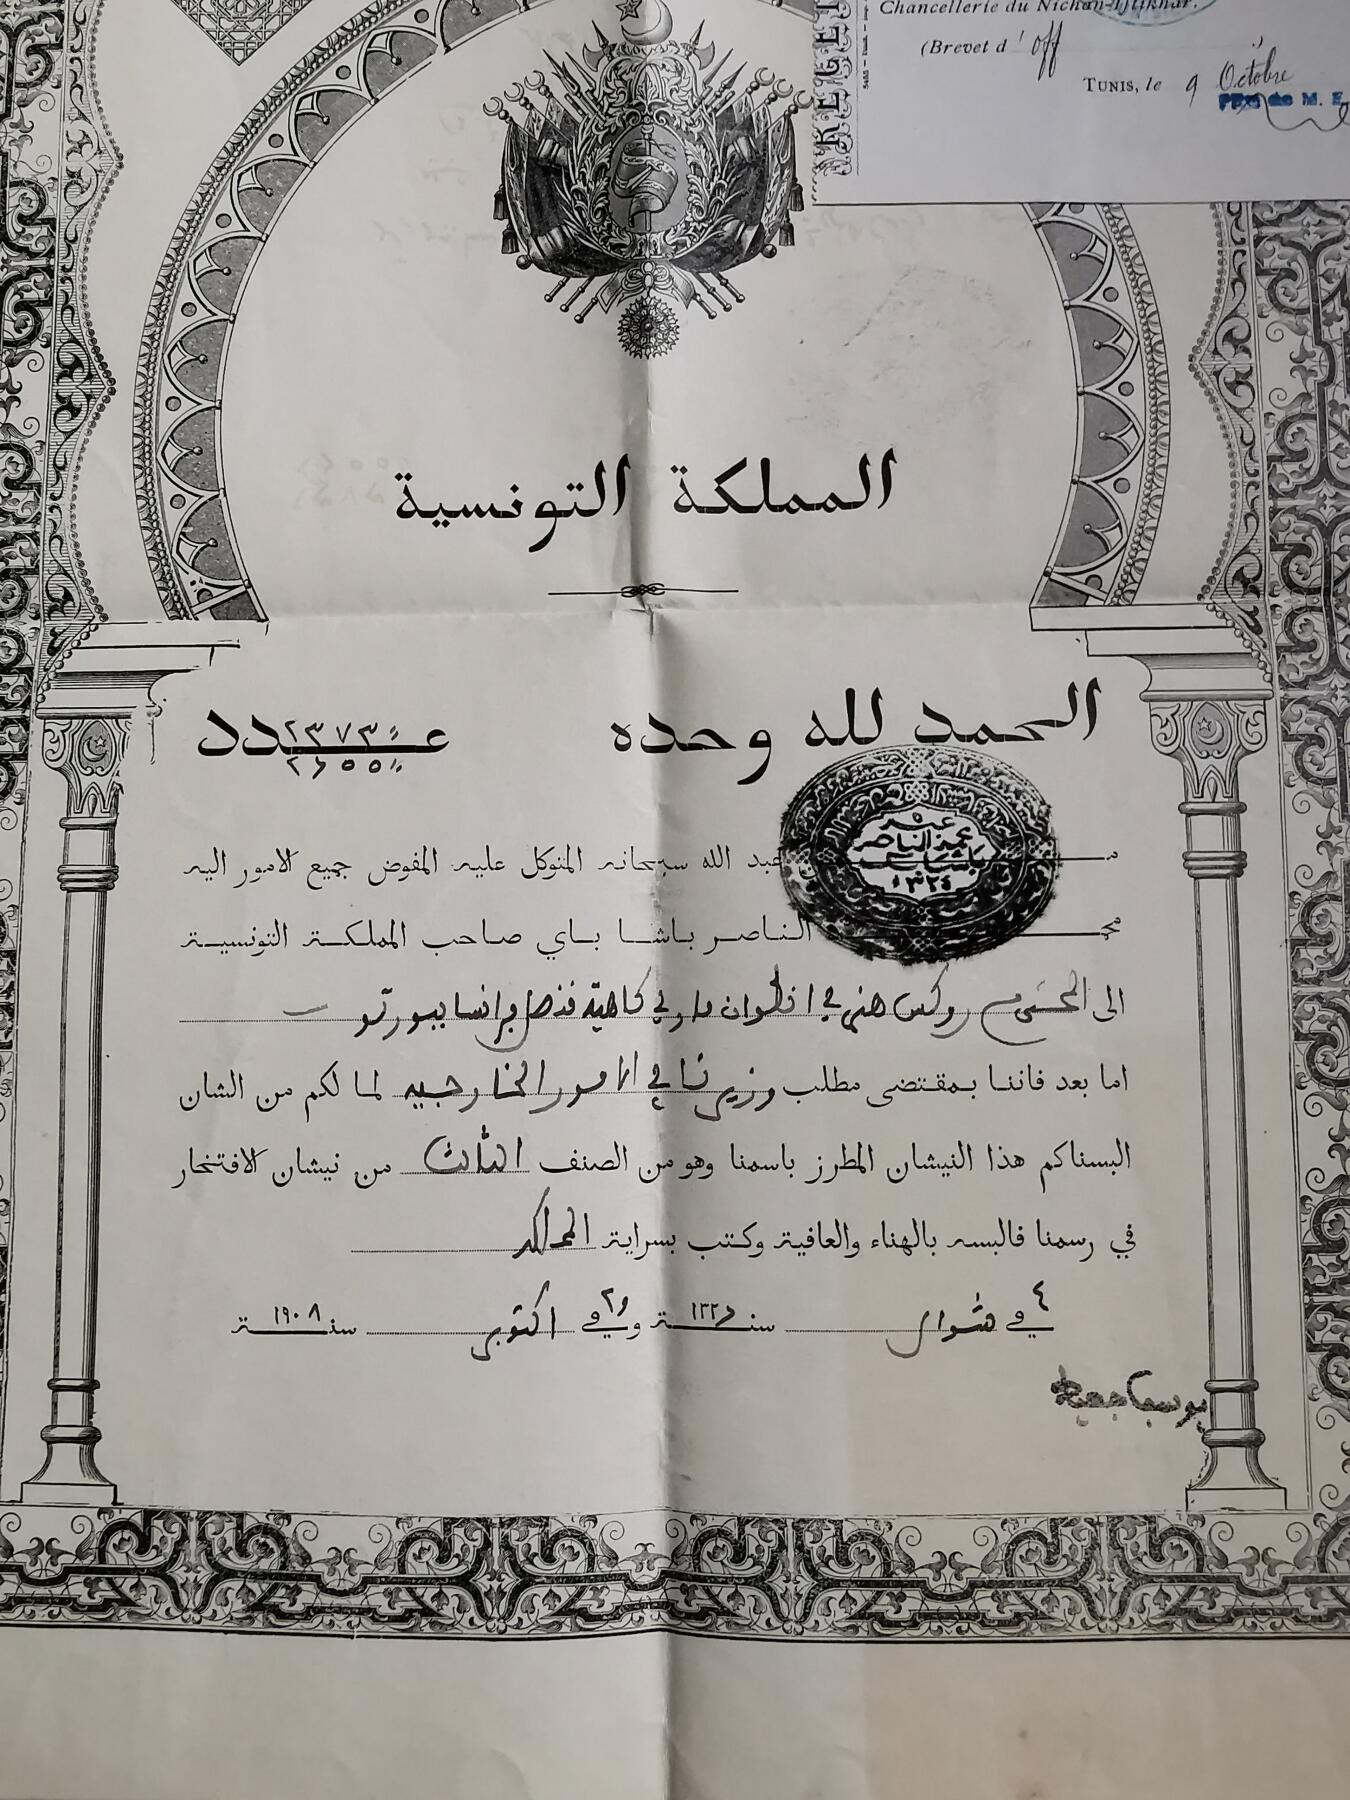 Chancellerie du Nichan-Iftikhar.
(Brevet d'off )
TUNIS, le 9 Octobre
المملكة التونسية
الحمد لله وحده عدد
٢٣٧٣٠
٢٦٥٥
من عبد الله سبحانه المتوكل عليه المفوض جميع الامور اليه
عبده
محمد الناصر
باشا باي
١٣٢٤
محمد الناصر باشا باي صاحب المملكة التونسية
الى المحترم روكس هنري انطوان ماري كاهية قنصل فرانسا ببورتو
اما بعد فاننا بمقتضى مطلب وزيرنا في الامور الخارجيه لما لكم من الشان
البسناكم هذا النيشان المطرز باسمنا وهو من الصنف الثالث من نيشان الافتخار
في رسمنا فالبسه بالهناء والعافية وكتب بسراية المملكه
في ٤ شوال سنة ١٣٢٦ وفي ٢٩ اكتوبر سنة ١٩٠٨
يوسف جعيط